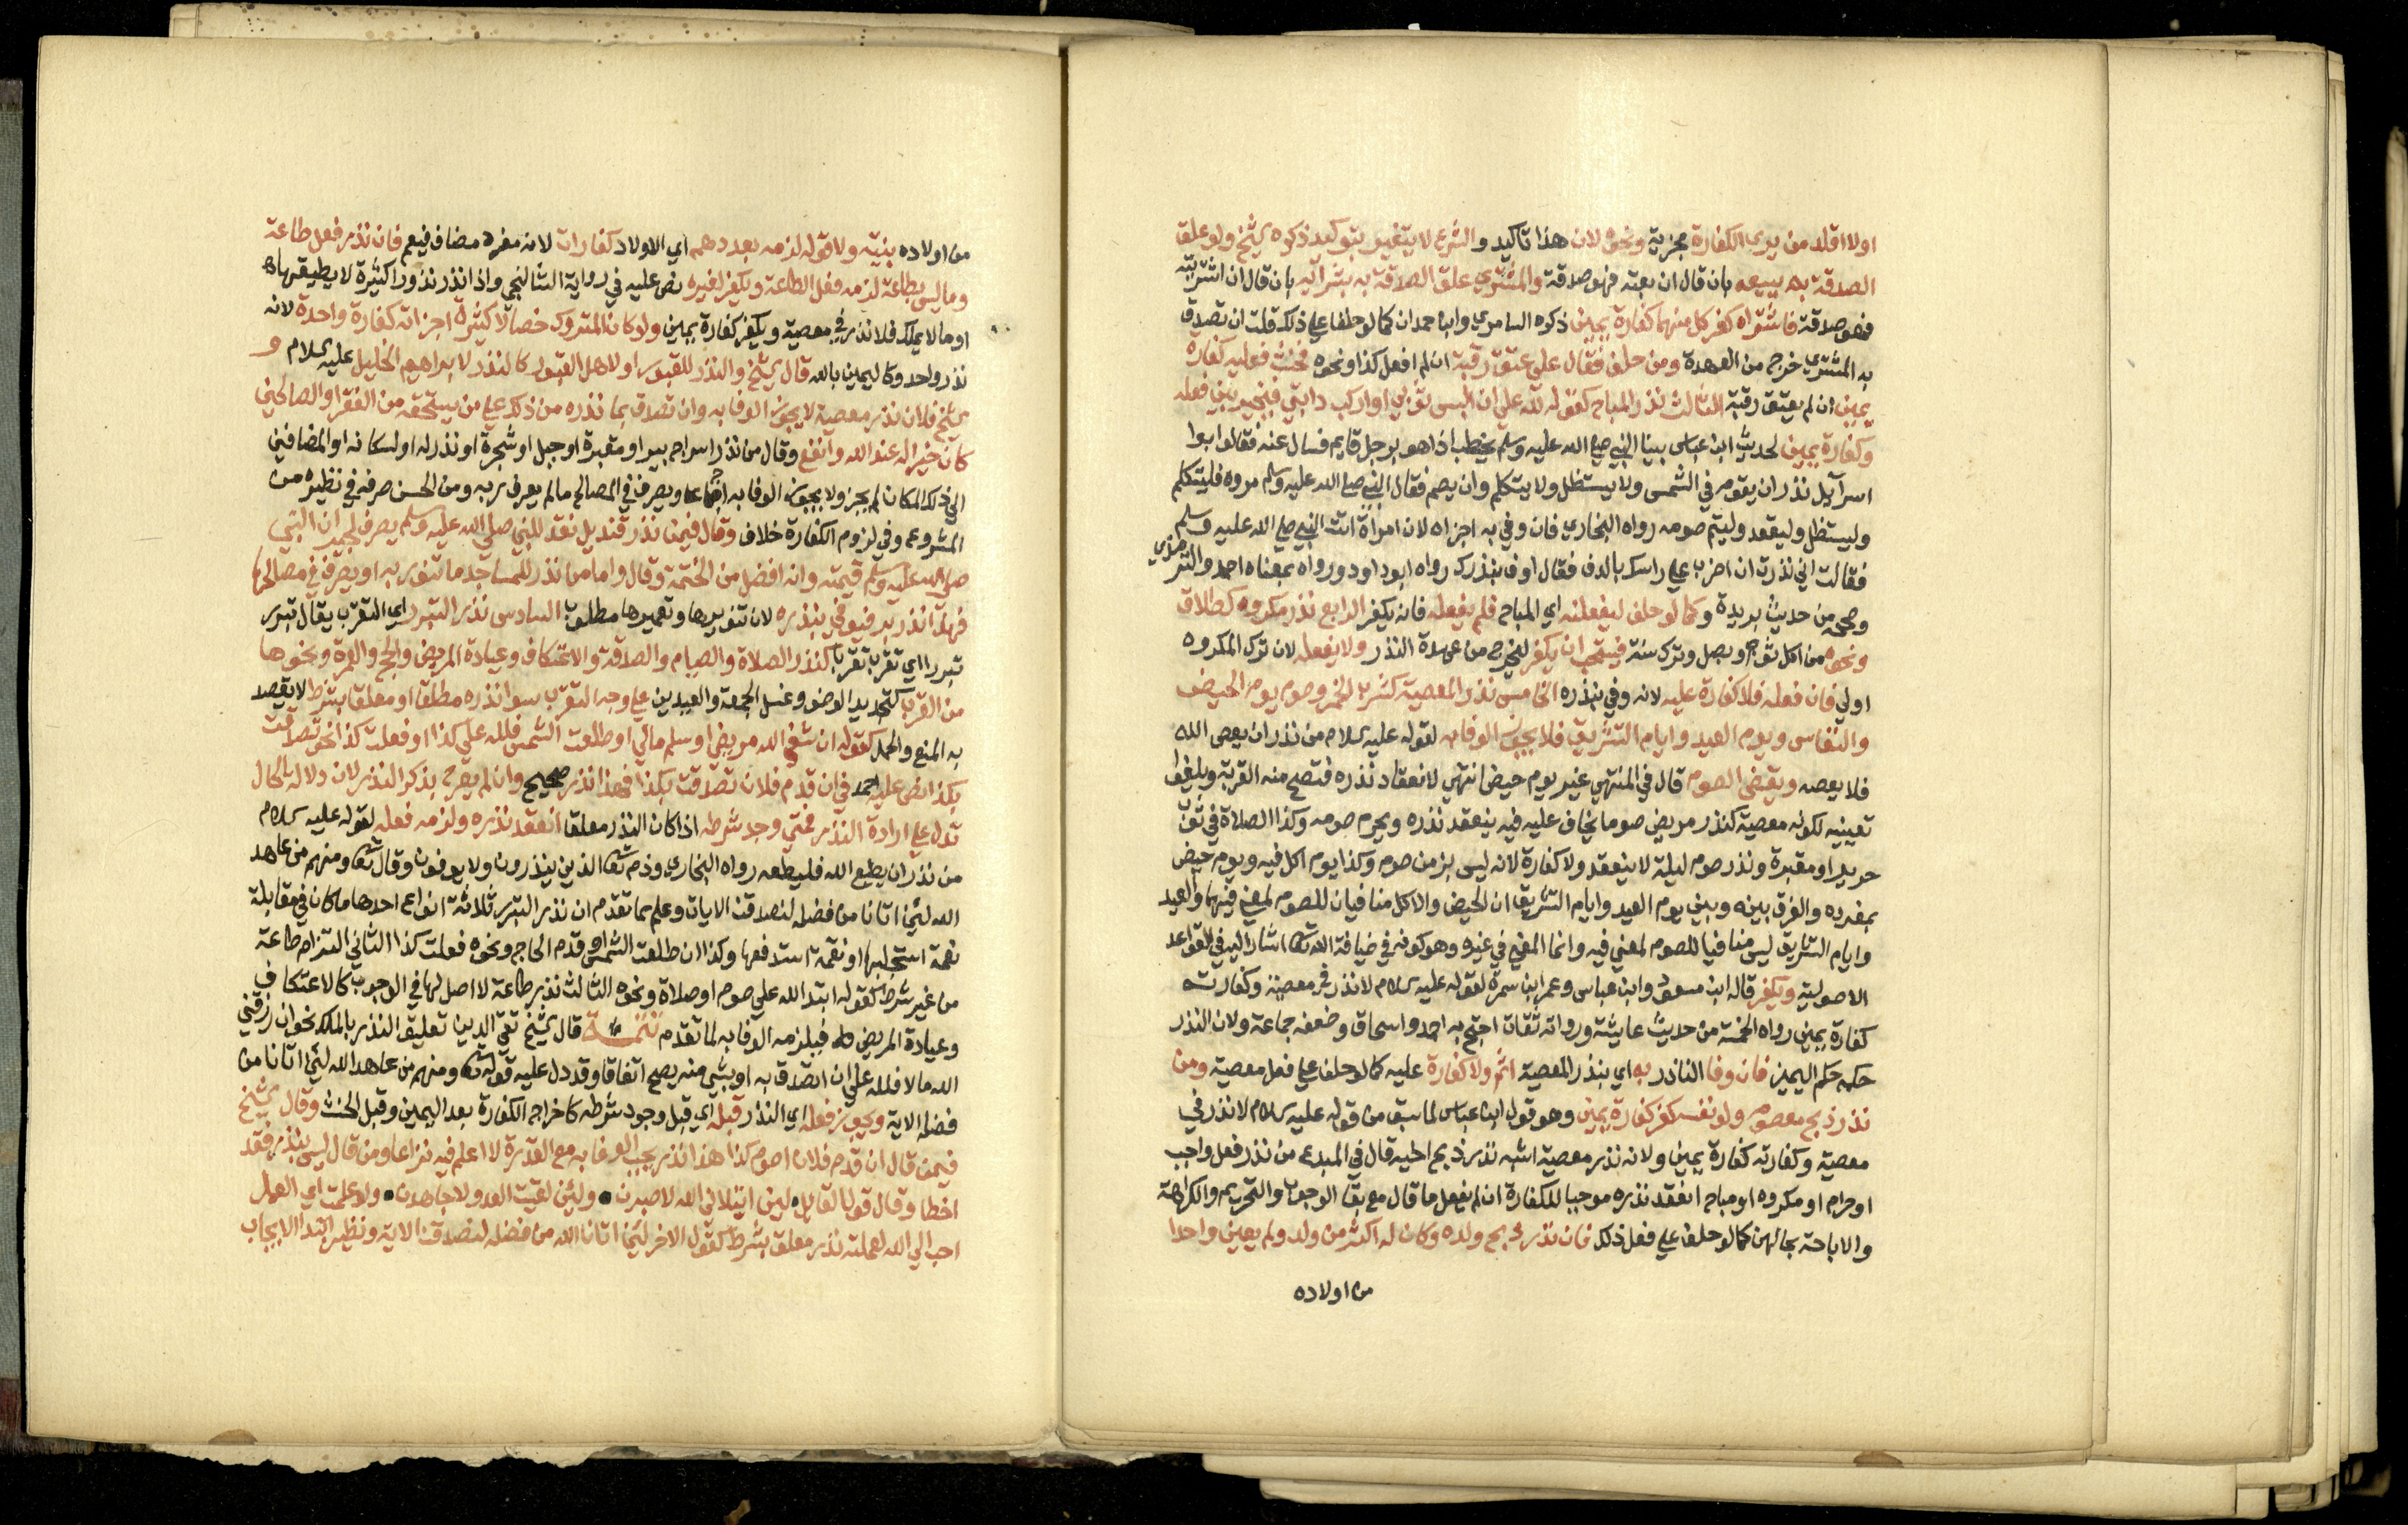 اولا اقلد من يرى الكفارة مجزية ونحوه لان هذا تاكيد والشرع لا يتغير بتوكيد ذكره الشيخ ولو علق
الصدقة به ببيعه بان قال ان بعته فهو صدقة والمشتري علق الصدقة به بشرآئه بان قال ان اشتريته
فهو صدقة فاشتراه كفر كل منهما كفارة يمين ذكره السامري وابن حمدان كما لو حلفا علي ذلك قلت ان تصدق
به المشتري خرج من العهدة ومن حلف فقال علي عتق رقبة ان لم افعل كذا ونحوه فحنث فعليه كفارة
يمين ان لم يعتق رقبة الثالث نذر المباح كقوله لله علي ان البس ثوبي او اركب دابتي فيخير بين فعله
وكفارة يمين لحديث ابن عباس بينا النبي صلى الله عليه وسلم يخطب اذا هو برجل قايم فسال عنه فقالوا ابوا
اسرآئيل نذر ان يقوم في الشمس ولا يستظل ولا يتكلم وان يصم فقال النبي صلى الله عليه وسلم مروه فليتكلم
وليستظل وليقعد وليتم صومه رواه البخاري فان وفي به اجزاه لان امراة اتت النبي صلى الله عليه وسلم
فقالت اني نذرت ان اضرب علي راسك بالدف فقال اوف بنذرك رواه ابو داود ورواه بمعناه احمد والترمذي
وصححه من حديث بريدة وكما لو حلف ليفعلنه اي المباح فلم يفعله فانه يكفر الرابع نذر مكروه كطلاق
ونحوه من اكل ثوم وبصل وترك سنة فيستحب ان يكفر ليخرج من عهدة النذر ولا يفعله لان ترك المكروه
اولي فان فعله فلا كفارة عليه لانه وفي بنذره الخامس نذر المعصية كشرب الخمر وصوم يوم الحيض
والنفاس ويوم العيد وايام التشريق فلا يجوز الوفا به لقوله عليه السلام من نذر ان يعصى الله
فلا يعصه ويقضي الصوم قال في المنتهي غير يوم حيض انتهي لانعقاد نذره فتصح منه القربة ويلغوا
تعيينه لكونه معصية كنذر مريض صوما يخاف عليه فيه ينعقد نذره ويحرم صومه وكذا الصلاة في ثوب
حرير او مقبرة ونذر صوم ليلة لا ينعقد ولا كفارة لانه ليس بزمن صوم وكذا يوم اكل فيه ويوم حيض
بمفرده والفرق بينه وبين يوم العيد وايام التشريق ان الحيض والاكل منافيان للصوم لمعني فيهما والعيد
وايام التشريق ليس منافيا للصوم لمعني فيه وانما المعني في غيره وهو كونه في ضيافة الله تعالى اشار اليه في القواعد
الاصولية ويكفر قاله ابن مسعود وابن عباس وعمران بن سمرة لقوله عليه السلام لا نذر في معصية وكفارته
كفارة يمين رواه الخمسة من حديث عايشة ورواته ثقات احتج به احمد واسحاق وضعفه جماعة ولان النذر
حكمه حكم اليمين فان وفا الناذر به اي بنذر المعصية اثم ولا كفارة عليه كما لو حلف علي فعل معصية ومن
نذر ذبح معصوم ولو نفسه كفر كفارة يمين وهو قول ابن عباس لما سبق من قوله عليه السلام لا نذر في
معصية وكفارته كفارة يمين ولانه نذر معصية اشبه نذر ذبح اخيه قال في المبدع من نذر فعل واجب
او حرام او مكروه او مباح انعقد نذره موجبا للكفارة ان لم يفعل ما قال مع بقا الوجوب والتحريم والكراهة
والاباحة بحالهن كما لو حلف علي فعل ذلك فان نذر ذبح ولده وكان له اكثر من ولد ولم يعين واحدا
من اولاده
من اولاده بنية ولا قوله لزمه بعددهم اي الاولاد كفارات لانه مفرد مضاف فيعم فان نذر فعل طاعة
وما ليس بطاعة لزمه فعل الطاعة ويكفر لغيره نص عليه في رواية الشالنجي واذا نذر نذورا كثيرة لا يطيقها
او مالا يملك فلا نذر في معصية ويكفر كفارة يمين ولو كان المتروك خصالا كثيرة اجزاته كفارة واحدة لانه
نذر واحد وكاليمين بالله قال الشيخ والنذر للقبور او لاهل القبور كالنذر لابراهيم الخليل عليه السلام و
الشيخ فلان نذر معصية لا يجوز الوفا به وان تصدق بما نذره من ذلك علي من يستحقه من الفقرا والصالحين
كان خيرا له عند الله وانفع وقال من نذر اسراج بير او مقبرة او جبل او شجرة او نذر له او لسكانه او المضافين
الي ذلك المكان لم يجز ولا يجوز الوفا به اجماعا ويصرف في المصالح مالم يعرف ربه ومن الحسن صرفه في نظيره من
المشروع وفي لزوم الكفارة خلاف وقال فيمن نذر قنديل نقد للنبي صلى الله عليه وسلم يصرف لجيران النبي
صلى الله عليه وسلم قيمته وانه افضل من الختمة وقال واما من نذر للمساجد ما تنور به او يصرف في مصالحها
فهذا نذر بر فيوفي بنذره لان تنويرها وتعميرها مطلوب السادس نذر التبرر اي التقرب يقال تبرر
تبررا اي تقرب تقربا كنذر الصلاة والصيام والصدقة والاعتكاف وعيادة المريض والحج والعمرة ونحوها
من القرب كتجديد الوضو وغسل الجمعة والعيدين علي وجه التقرب سوا نذره مطلقا او معلقا بشرط لا يقصد
به المنع والحمل كقوله ان شفي الله مريضي او سلم مالي او طلعت الشمس فلله علي كذا او فعلت كذا نحو تصدقت
بكذا نص عليه احمد في ان قدم فلان تصدقت بكذا فهذا نذر صحيح وان لم يصرح بذكر النذر لان دلالة الحال
تدل علي ارادة النذر فمتي وجد شرطه اذا كان النذر معلقا انعقد نذره ولزمه فعله لقوله عليه السلام
من نذر ان يطيع الله فليطعه رواه البخاري وذم تعالى الذين ينذرون ولا يوفون وقال تعالى ومنهم من عاهد
الله لئن اتانا من فضله لنصدقن الايات وعلم مما تقدم ان نذر التبرر ثلاثة انواع احدها ما كان في مقابلة
نعمة استجلبها او نقمة استدفعها وكذا ان طلعت الشمس او قدم الحاج ونحوه فعلت كذا الثاني التزام طاعة
من غير شرط كقوله ابتدا لله علي صوم او صلاة ونحوه الثالث نذر طاعة لا اصل لها في الوجوب كالاعتكاف
وعيادة المريض فيلزمه الوفا به لما تقدم تتمة قال الشيخ تقي الدين تعليق النذر بالملك نحو ان رزقني
الله مالا فلله علي ان اتصدق به او بشي منه يصح اتفاقا وقد دل عليه قوله تعالى ومنهم من عاهد الله لئن اتانا من
فضله الاية ويجوز فعله اي النذر قبله اي قبل وجود شرطه كاخراج الكفارة بعد اليمين وقبل الحنث وقال الشيخ
فيمن قال ان قدم فلان اصوم كذا هذا نذر يجب الوفا به مع القدرة لا اعلم فيه نزاعا ومن قال ليس بنذر فقد
اخطا وقال قول القايل لين ابتلاني الله لاصبرن ولئن لقيت العدو لاجاهدن ولو علمت اي العمل
احب الي الله لعملته نذر معلق بشرط كقول الاخر لئن اتانا الله من فضله لنصدقن الاية ونظير ابتدا الايجاب